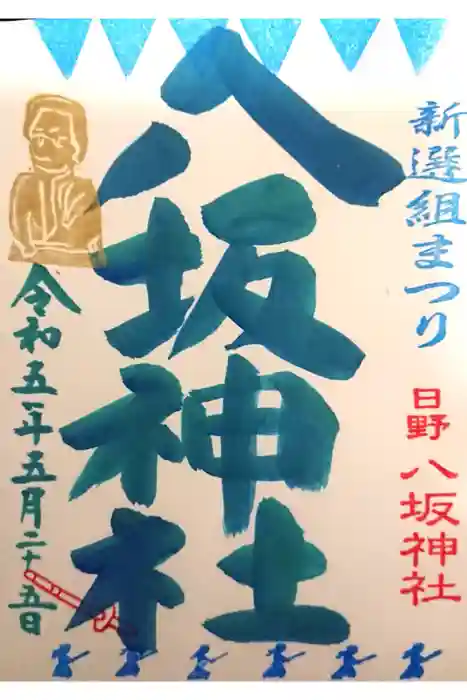 新選組まつり
日野 八坂神社
八坂神社
令和五年五月二十五日